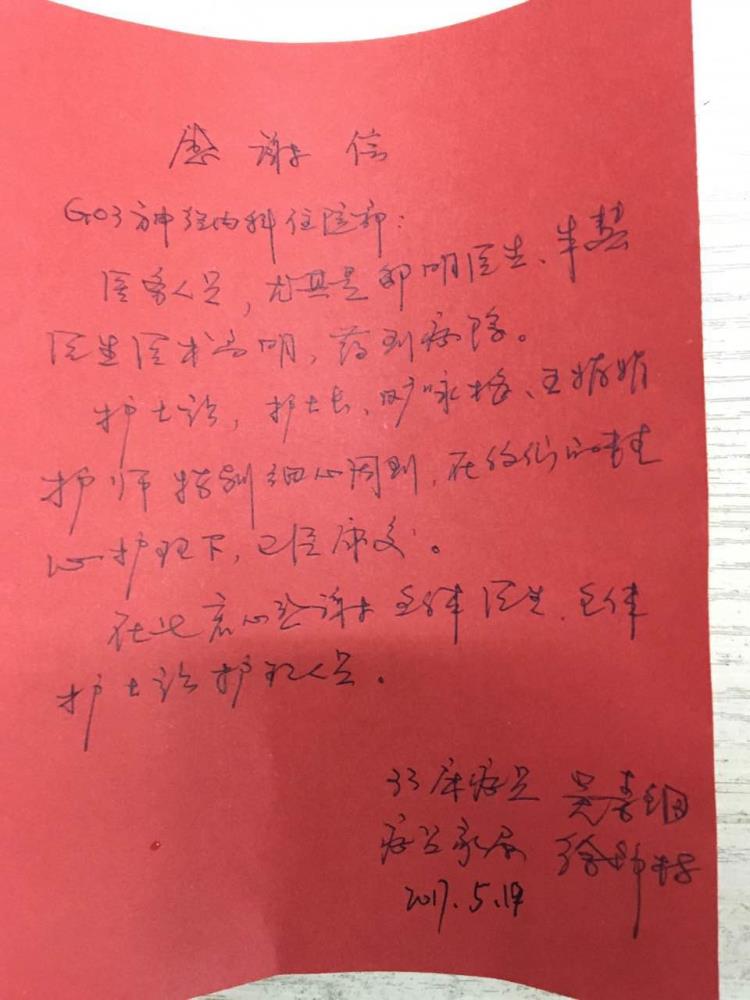 感谢信
G03神经内科住院部：
医务人员，尤其是邹明医生、牟慧
医生医术高明，药到病除。
护士站，护士长、旷咏梅、王娟娟
护师特别细心周到，在她们的精
心护理下，已经康复。
在此衷心感谢全体医生、全体
护士站护理人员。
33床病员 吴素
病员家属 徐
2017.5.19